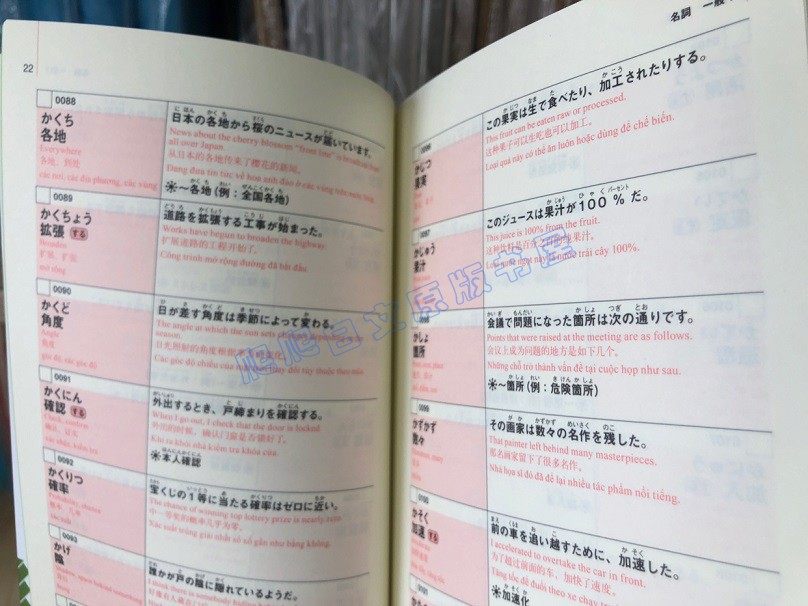 22
0088
かくち
各地
Everywhere
各地、到处
các nơi, các địa phương, các vùng
日本の各地から桜のニュースが届いています。
News about the cherry blossom "front line" is broadcast from
all over Japan.
从日本的各地传来了樱花的新闻。
Đang đưa tin tức về hoa anh đào ở các vùng trên nước Nhật.
※～各地(例：全国各地)
0089
かくちょう
拡張 する
Broaden
扩展、扩张
mở rộng
道路を拡張する工事が始まった。
Works have begun to broaden the highway.
扩展道路的工程开始了。
Công trình mở rộng đường đã bắt đầu.
0090
かくど
角度
Angle
角度
góc độ, các góc
日が差す角度は季節によって変わる。
The angle at which the sun sets changes
season.
日光照射的角度根据
Các góc độ chiếu
thay đổi tùy thuộc theo mùa.
0091
かくにん
確認 する
Check, confirm
确认
xác nhận, kiểm tra
外出するとき、戸締まりを確認する。
When I go out, I check that the door is locked.
外出的时候，确认门窗是否锁好了。
Khi ra khỏi nhà kiểm tra khóa cửa.
※本人確認
0092
かくりつ
確率
Probability, chance
概率
xác suất
宝くじの１等に当たる確率はゼロに近い。
The chance of winning top lottery prize is nearly zero.
中一等奖的概率几乎为零。
Xác suất trúng giải nhất sổ số gần như bằng không.
0093
かげ
陰
behind something
誰かが戸の陰に隠れているようだ。
I think there is somebody
名詞 一般
かじつ
果実
この果実は生で食べたり、加工されたりする。
This fruit can be eaten raw or processed.
这种果子可以生吃也可以加工。
Loại quả này có thể ăn luôn hoặc dùng để chế biến.
かじゅう
果汁
このジュースは果汁が100 % だ。
This juice is 100% from the fruit.
Loại nước ngọt này là nước trái cây 100%.
かしょ
箇所
会議で問題になった箇所は次の通りです。
Points that were raised at the meeting are as follows.
会议上成为问题的地方是如下几个。
Những chỗ trở thành vấn đề tại cuộc họp như sau.
※～箇所(例：危険箇所)
0099
かずかず
数々
その画家は数々の名作を残した。
That painter left behind many masterpieces.
那名画家留下了很多名作。
Nhà họa sĩ đó đã để lại nhiều tác phẩm nổi tiếng.
0100
かそく
加速 する
前の車を追い越すために、加速した。
I accelerated to overtake the car in front.
为了超过前面的车，加快了速度。
Tăng tốc để đuổi theo xe chạy trước
※加速化
0101
爬爬日文原版书屋